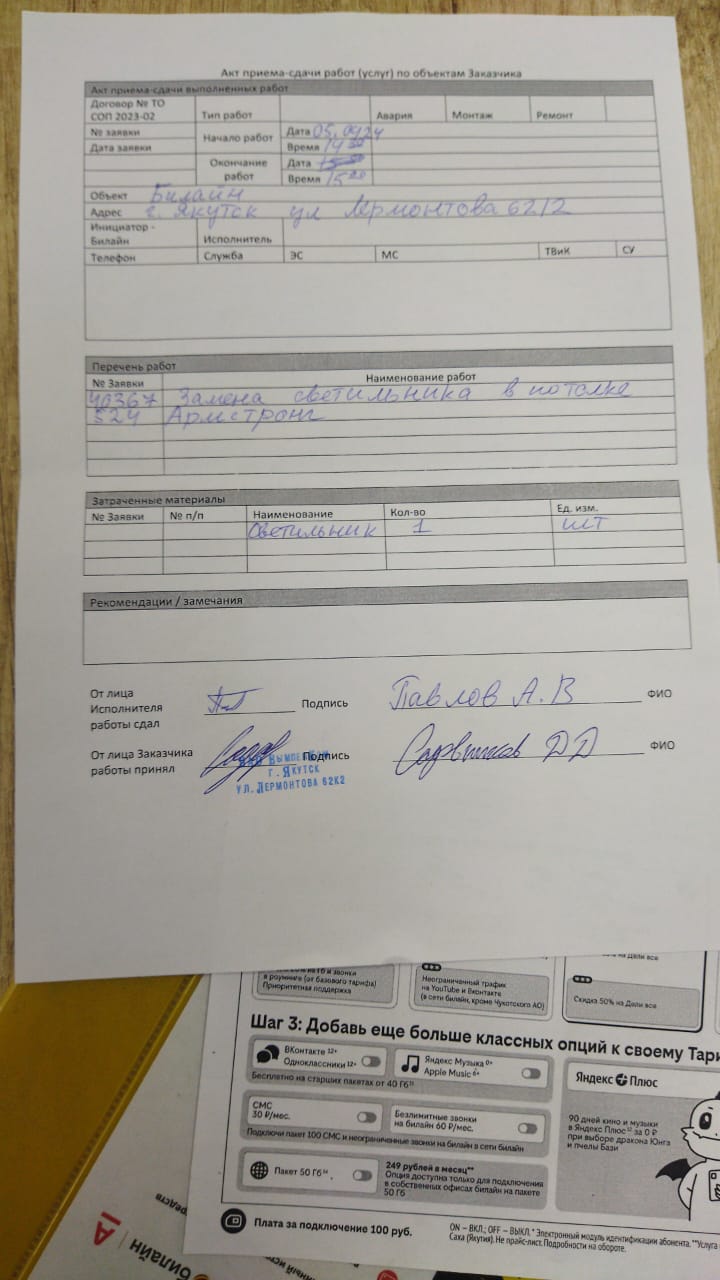 Акт приема-сдачи работ (услуг) по объектам Заказчика
Акт приема-сдачи выполненных работ
Договор № ТО СОП 2023-02 Тип работ Авария Монтаж Ремонт
№ заявки Начало работ Дата 05.09.24
Дата заявки Время 14 30
Окончание работ Дата
Время 15 00
Объект Билайн
Адрес г. Якутск ул Лермонтова 62/2
Инициатор - Билайн Исполнитель
Телефон Служба ЭС МС ТВиК СУ
Перечень работ
№ Заявки Наименование работ
40367 Замена светильника в потолке
524 Армстронг
Затраченные материалы
№ Заявки № п/п Наименование Кол-во Ед. изм.
Светильник 1 шт
Рекомендации / замечания
От лица
Исполнителя Подпись Павлов А.В ФИО
работы сдал
От лица Заказчика Подпись ДД ФИО
работы принял
г. Якутск
ул. Лермонтова 62к2
в роуминге (от базового тарифа)
Приоритетная поддержка
Неограниченный трафик
на YouTube и Вконтакте
(в сети билайн, кроме Чукотского АО)
Скидка 50% на Дели все
Шаг 3: Добавь еще больше классных опций к своему Тари
ВКонтакте 12+
Одноклассники 12+
Яндекс Музыка 0+
Apple Music 6+
Бесплатно на старших пакетах от 40 Гб
Яндекс Плюс
СМС
30 ₽/мес.
Безлимитные звонки
на билайн 60 ₽/мес.
Подключи пакет 100 СМС и неограниченные звонки на билайн в сети билайн
90 дней кино и музыки
в Яндекс Плюс за 0 ₽
при выборе дракона Юнга
и пчелы Бази
Пакет 50 Гб
249 рублей в месяц**
Опция доступна только для подключения
в собственных офисах билайн на пакете
50 Гб
Плата за подключение 100 руб.
ON – ВКЛ.; OFF – ВЫКЛ. * Электронный модуль идентификации абонента. **Услуга
Саха (Якутия). Не прайс-лист. Подробности на обороте.
билайн
средств